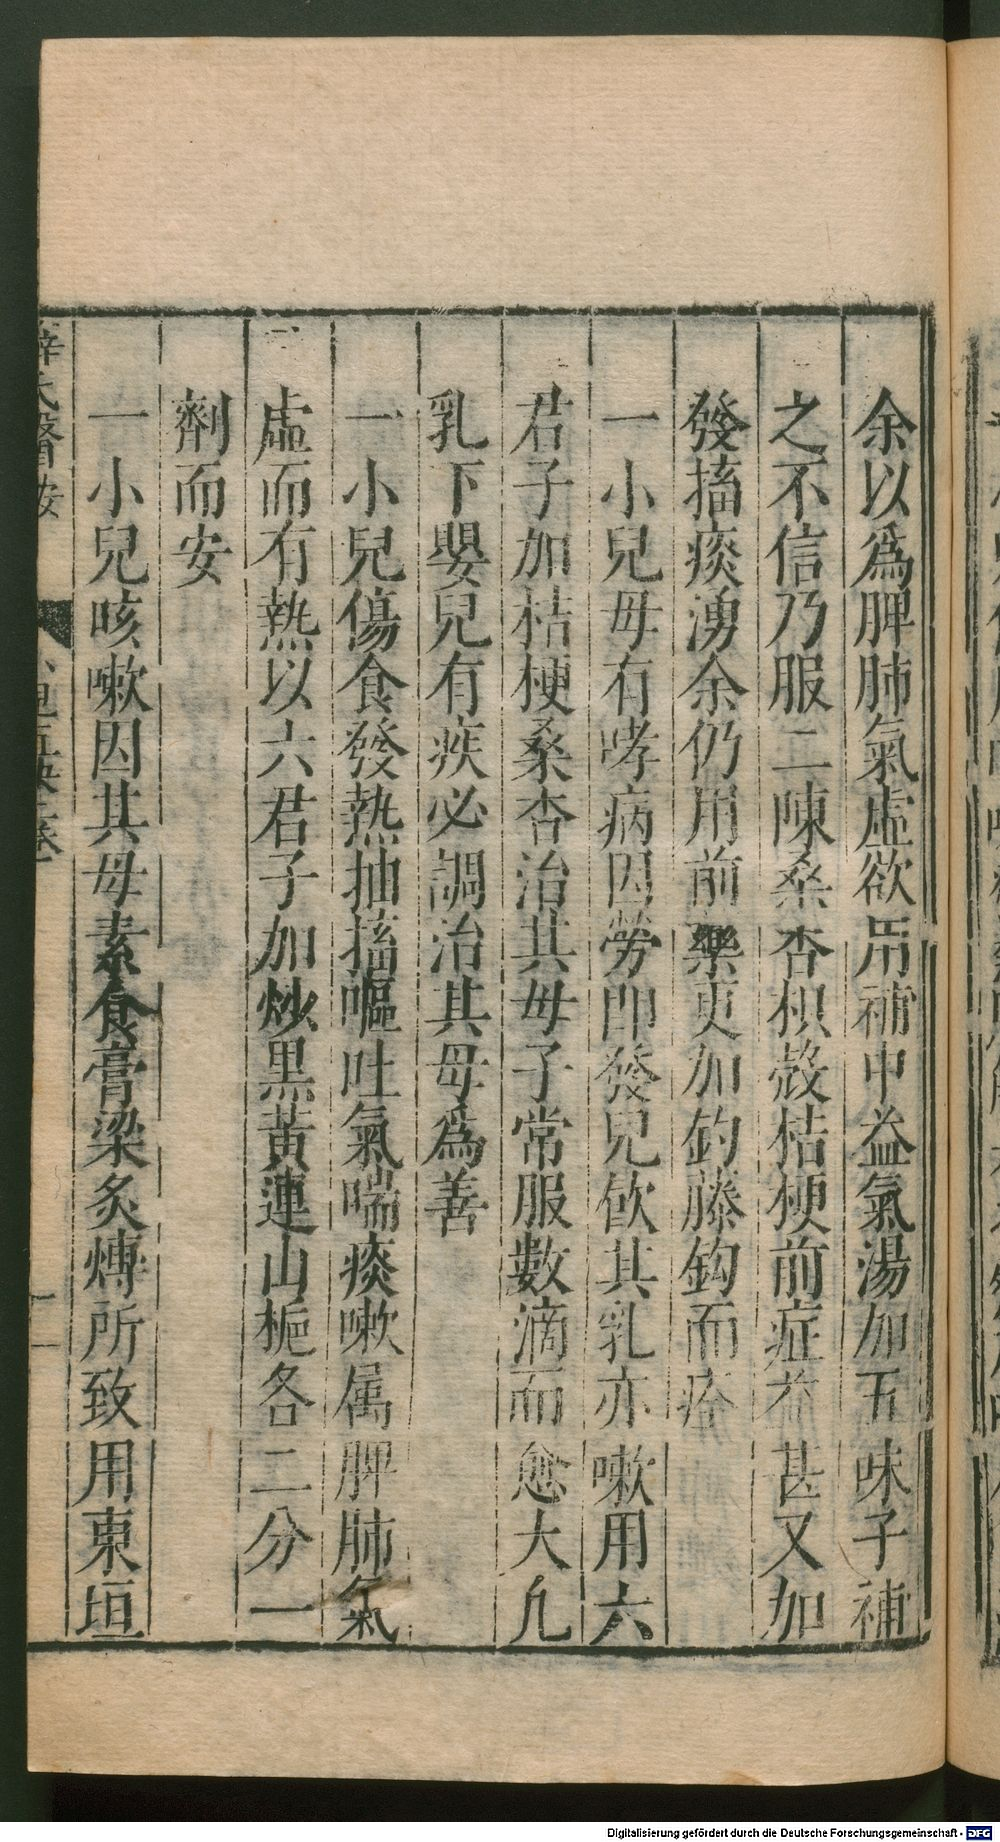 余以爲脾肺氣虛欲用補中益氣湯加五味子補
之不信乃服二陳桑杏枳殼桔梗前症益甚又加
發搐痰湧余仍用前藥更加鈎藤鈎而痊
一小兒母有哮病因勞即發兒飲其乳亦嗽用六
君子加桔梗桑杏治其母子常服數滴而愈大凡
乳下嬰兒有疾必調治其母爲善
一小兒傷食發熱抽搐嘔吐氣喘痰嗽属脾肺氣
虛而有熱以六君子加炒黑黃連山梔各二分一
劑而安
一小兒咳嗽因其母素食膏粱炙煿所致用東垣
薛氏醫按
Digitalisierung gefördert durch die Deutsche Forschungsgemeinschaft - DFG